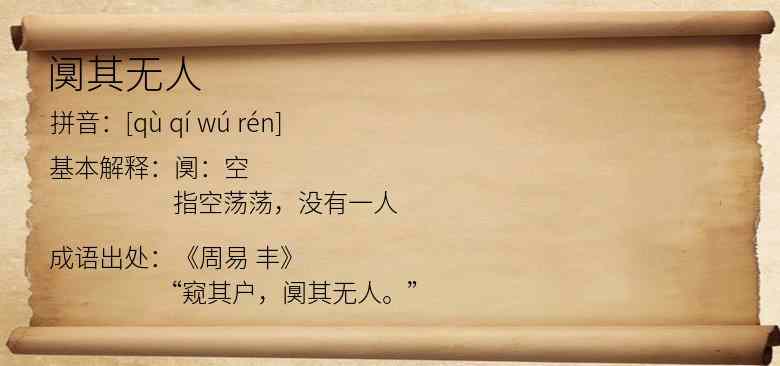 阒其无人
拼音：[qù qí wú rén]
基本解释：阒：空
指空荡荡，没有一人
成语出处：《周易 丰》
“窥其户，阒其无人。”